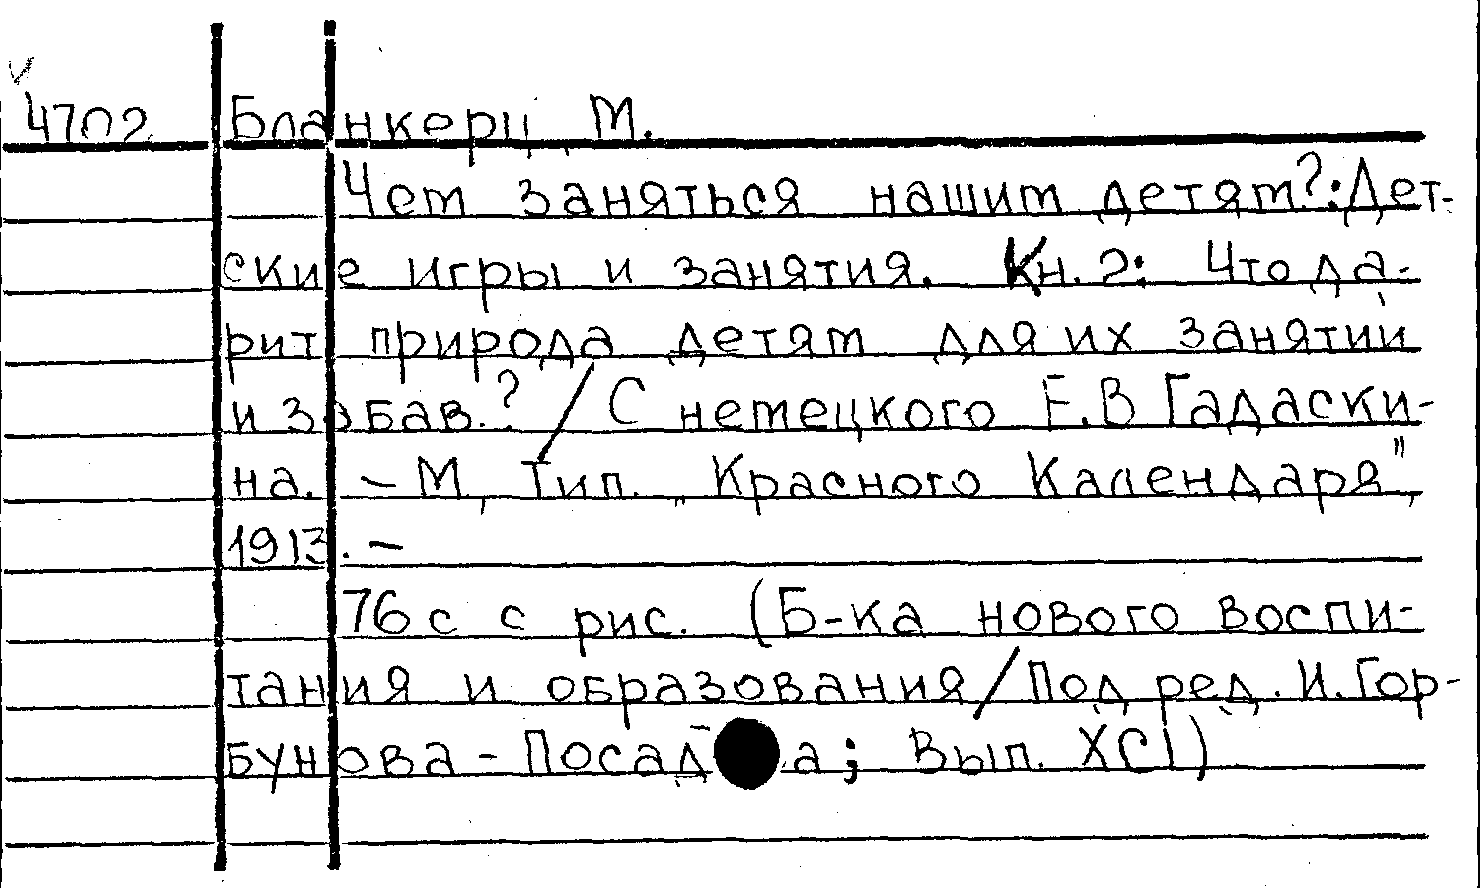 4702 Бланкерц М.
Чем заняться нашим детям?: Дет-
ские игры и занятия. Кн. 2: Что да-
рит природа детям для их занятий
и забав.? / С немецкого Е.В Гадаски-
на. – М, Тип. „Красного Календаря",
1913. –
76 с с рис. (Б-ка нового воспи-
тания и образования / Под ред. И. Гор-
бунова - Посадова; Вып. XCI)